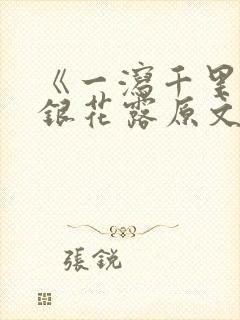 《一瀉千里
銀花露原文
張銳